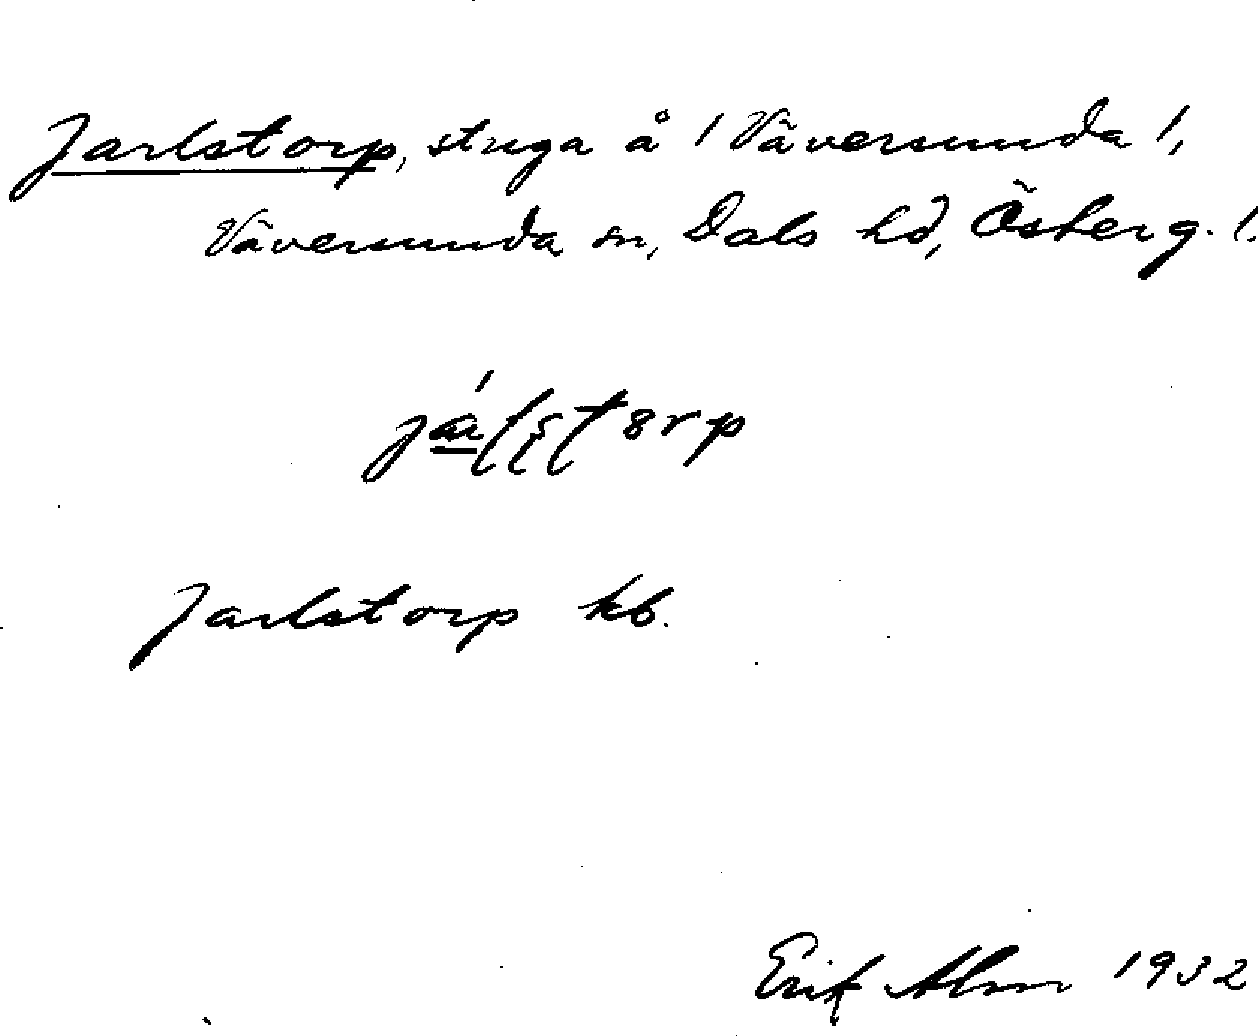 Jarlstorp, stuga å / Väversunda /,
Väversunda sn, Dals hd, Österg. l.
Jarlstorp kb.
Erik Alm 1932